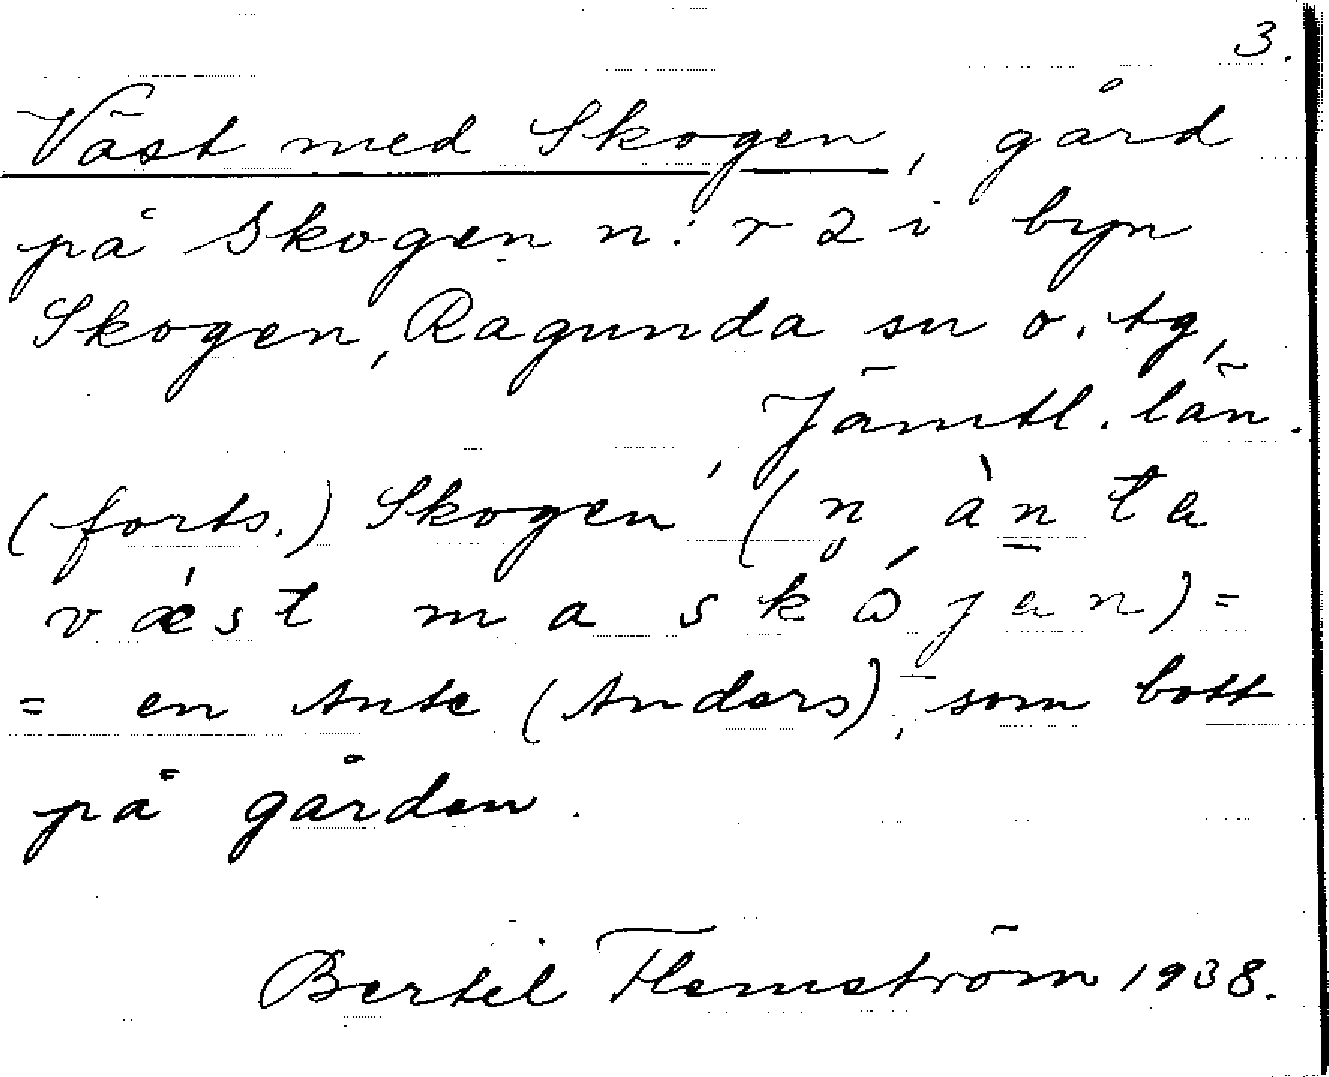 3.
Väst med Skogen, gård
på Skogen n:r 2 i byn
Skogen, Ragunda sn o. tg,
Jämtl. län.
(forts.) Skogen' (n ànta
væ̀st ma skǻjan) =
= en Ante (Anders), som bott
på gården.
Bertil Flemström 1938.